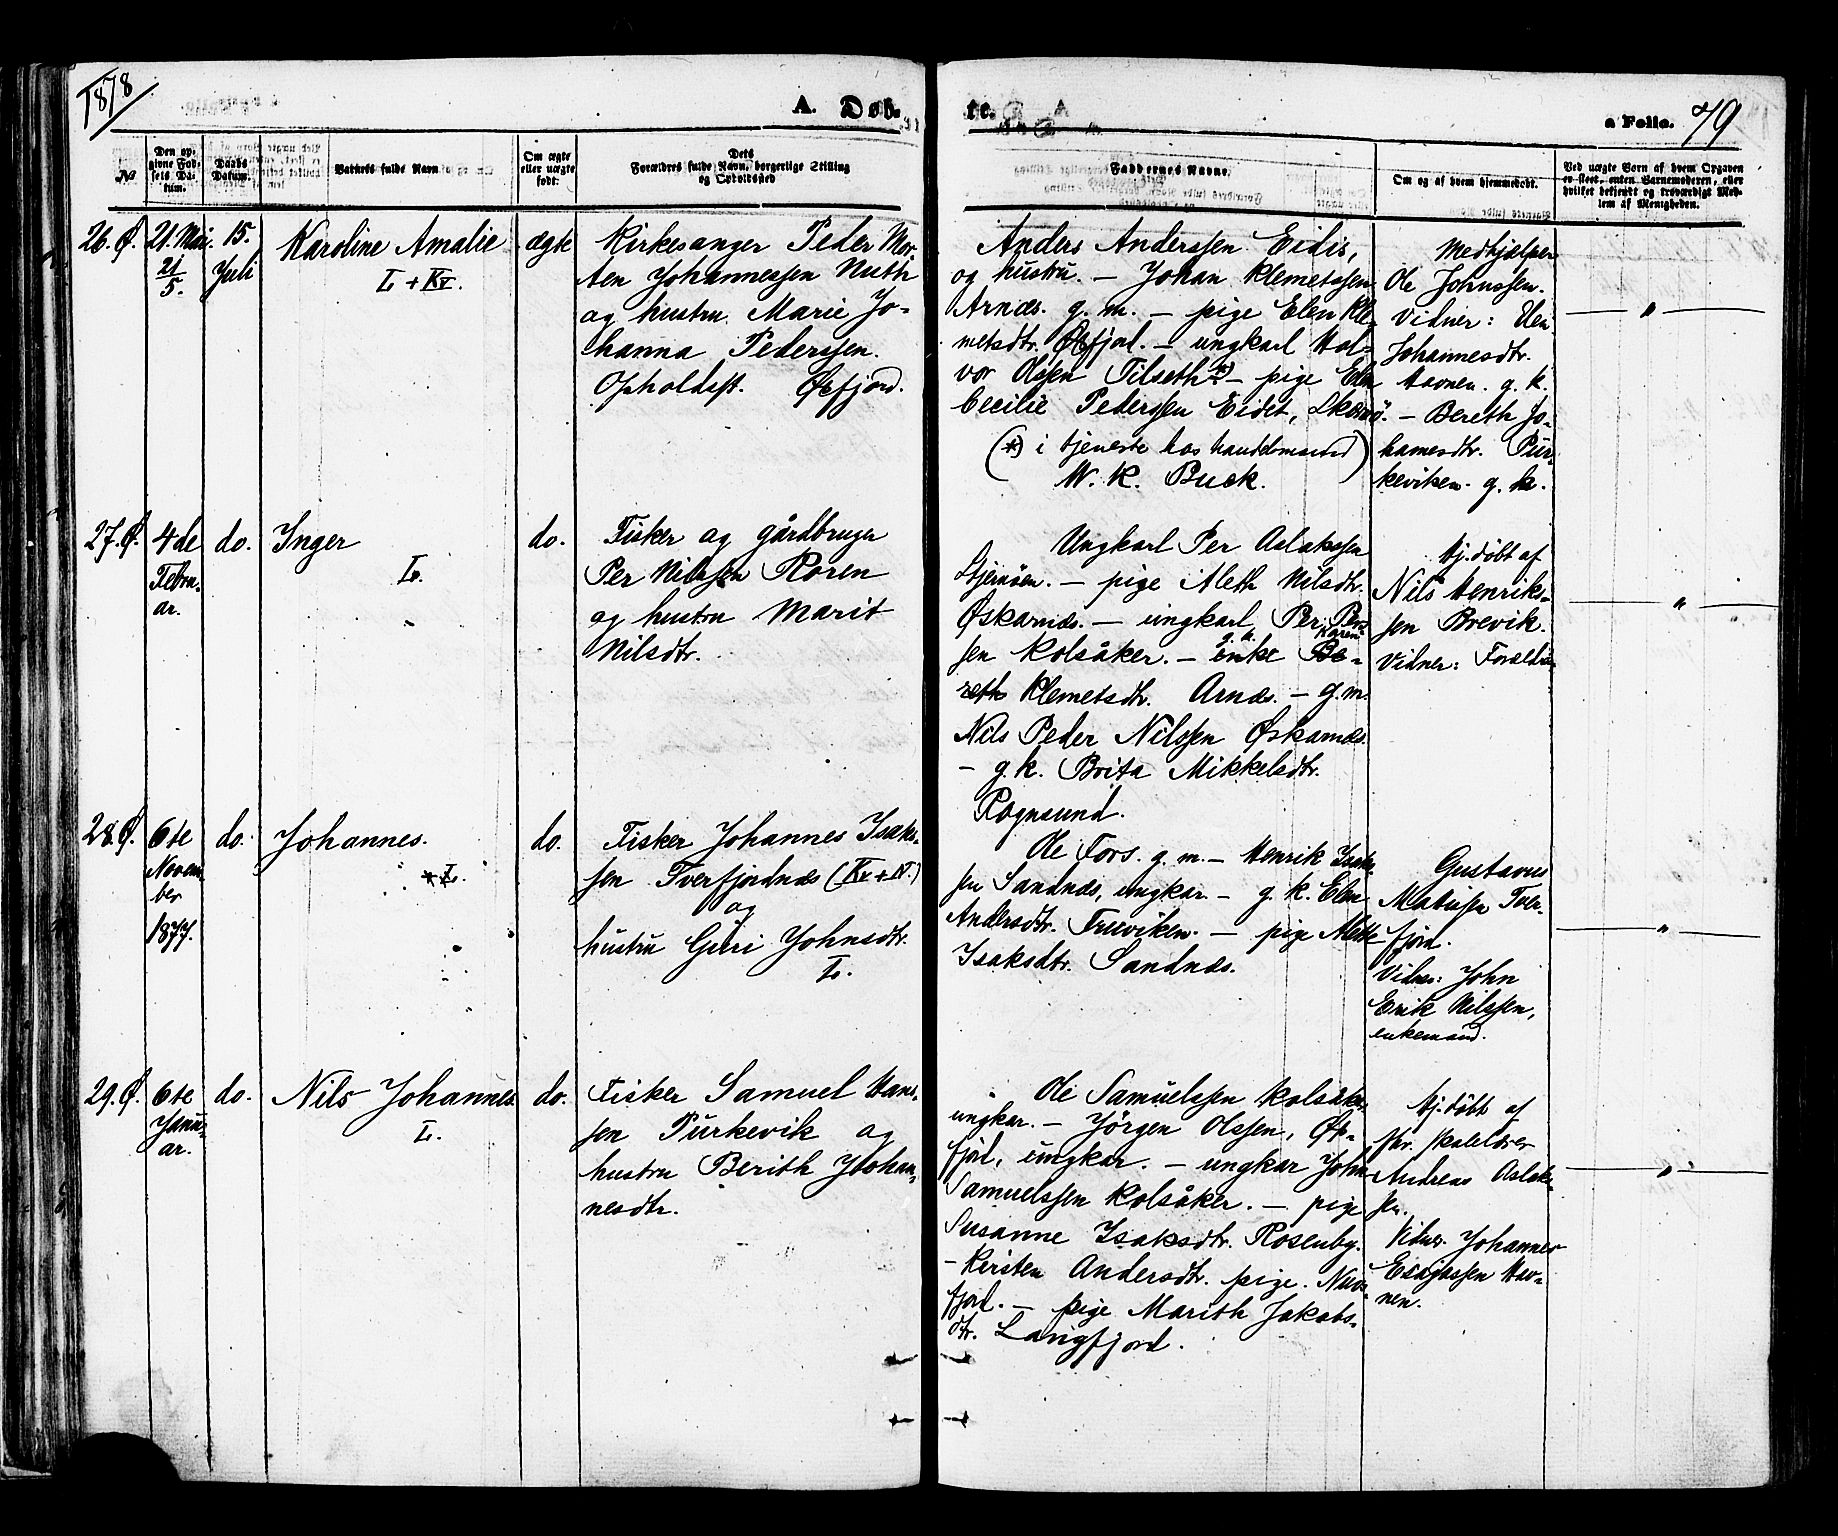 1878
A. Døb-
te.
a Folio. 79
№
Den op-
givne Fød-
sels Da-
tum.
Daabs
Datum.
Barnets fulde Navn
Om ægte
eller uægte
født.
Dets
Forældres fulde Navn, borgerlige Stilling
og Opholdssted
Faddernes Navne.
Om og af hvem hjemmedøbt.
Ved uægte Børn af hvem Opgaven
er skeet, enten Barnemoderen, eller
hvilket bekjendt og troværdigt Med-
lem af Menigheden.
26. Ø.
21. Mai.
21
5.
15.
Juli
Karoline Amalie
L + Kv.
ægte
Kirkesanger Peder Mor-
ten Johannessen Muth
og hustru Marie Jo-
hanna Pederssen.
Opholdsst. Øxfjord.
Anders Anderssen Eidis,
og hustru. — Johan Klemetssen
Arnæs. g. m. — pige Elen Kle-
metsdtr. Øxfjord. — ungkarl Hal-
vor Olssen Tilseth *) — pige Elen
Cecilie Pederssen Eidet,
(*) i tjeneste hos handelsmand)
W. K. Buck.
Medhjælper
Ole Johnssen.
Vidner: Elen
Johannesdtr.
Havnen. g. k.
— Bereth Jo-
hannesdtr. Pur-
keviken. g. k.
"
27. Ø.
4de
Febru-
ar.
do.
Inger
L.
do.
Fisker og gårdbruger
Per Nilssen Roren
og hustru Marit
Nilsdtr.
Ungkarl Per Aslakssen
Stjernøen. — pige Aleth Nilsdtr.
Øskarnæs. — ungkarl Per Pers-
sen Kolsåker. — g. k. enke Karen Be-
reth Klemetsdtr. Arnæs. — g. m.
Nils Peder Nilssen Øskarnæs.
— g. k. Brita Mikkelsdtr.
Rognsund.
Hj. døbt af
Nils Henriks-
sen Brevik.
Vidner: Forældre
"
28. Ø.
6te
Novem-
ber
1877.
do.
Johannes.
L.
do.
Fisker Johannes Isaks-
sen Tverfjordnæs (Kv + N.)
og
hustru Guri Johnsdtr.
L.
De Fors. g. m. — Henrik Isak-
sen Sandnæs, ungkar — g. k. Elen
Andersdtr. — pige Mette
Isaksdtr. Sandnæs.
Gustavus
Mathisen Tver-
fjord.
Vidner: John
Erik Nilssen,
enkemand.
"
29. Ø.
6te
Janu-
ar.
do.
Nils Johannes
L.
do.
Fisker Samuel Hans-
sen Purkevik og
hustru Berith Johan-
nesdtr.
Ole Samuelssen Kolsåker
ungkar. — Jörgen Olssen, Øx-
fjord, ungkar. — ungkar John
Samuelssen Kolsåker. — pige
Susanne Isaksdtr. Rosenby.
— Kirsten Andersdtr. pige. Nuvs-
fjord. — pige Marith Jakobs-
dtr. Langfjord.
Hj. døbt af
Skolelærer
Andreas Aslak-
sen.
Vidner. Johannes
Esajassen Hav-
nen.
"